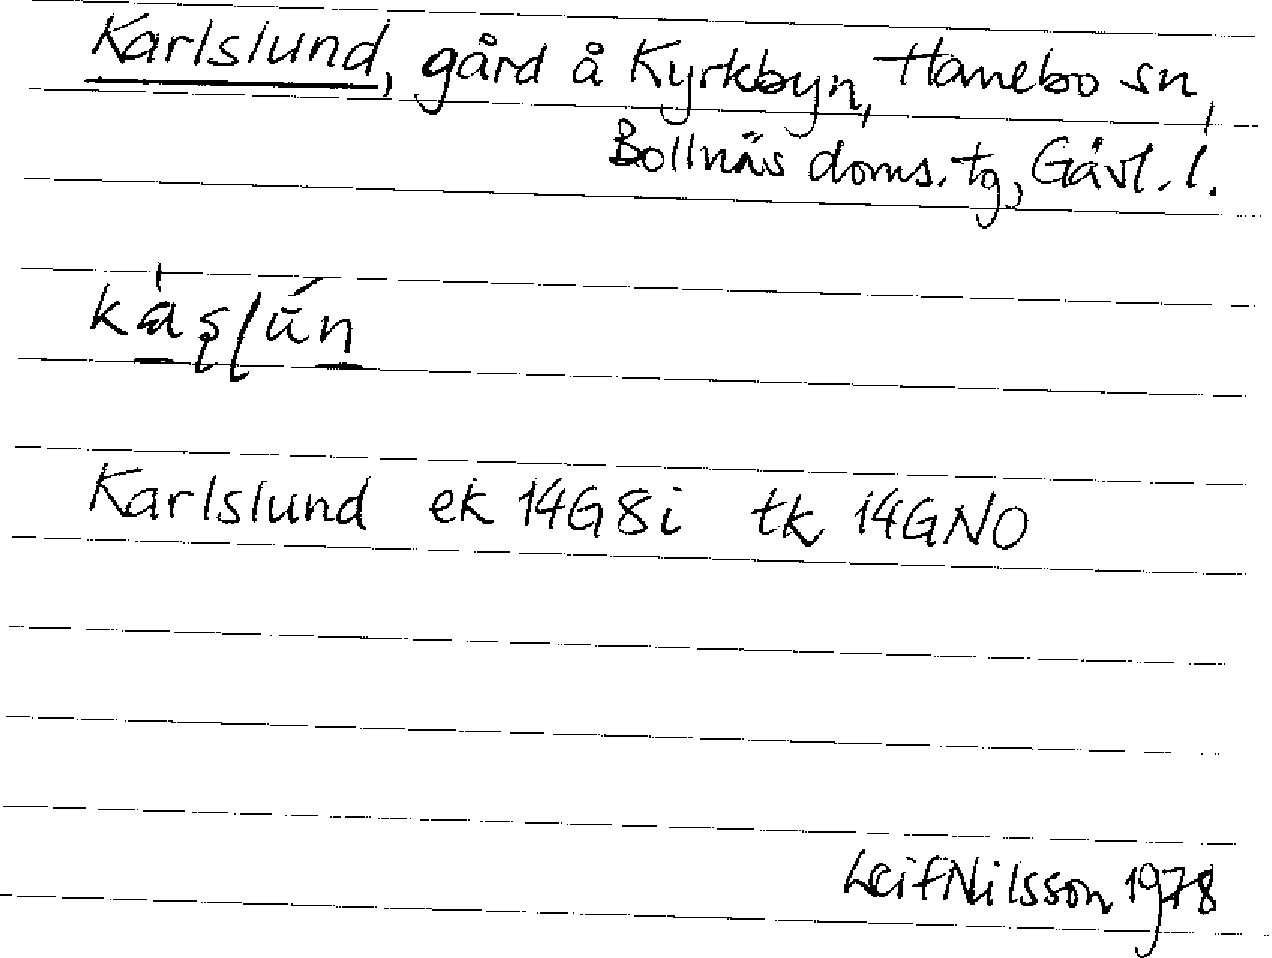 Karlslund, gård å Kyrkbyn, Hanebo sn,
Bollnäs doms. tg, Gävl. l.
Karlslund ek 14G8i tk 14GNO
Leif Nilsson 1978